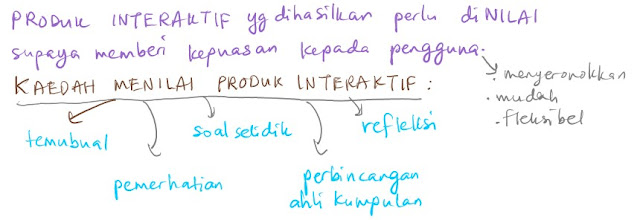 PRODUK INTERAKTIF yg dihasilkan perlu diNILAI
supaya memberi kepuasan kepada pengguna.
. menyeronokkan
. mudah
. fleksibel
KAEDAH MENILAI PRODUK INTERAKTIF :
temubual
soal selidik
refleksi
pemerhatian
perbincangan
ahli kumpulan